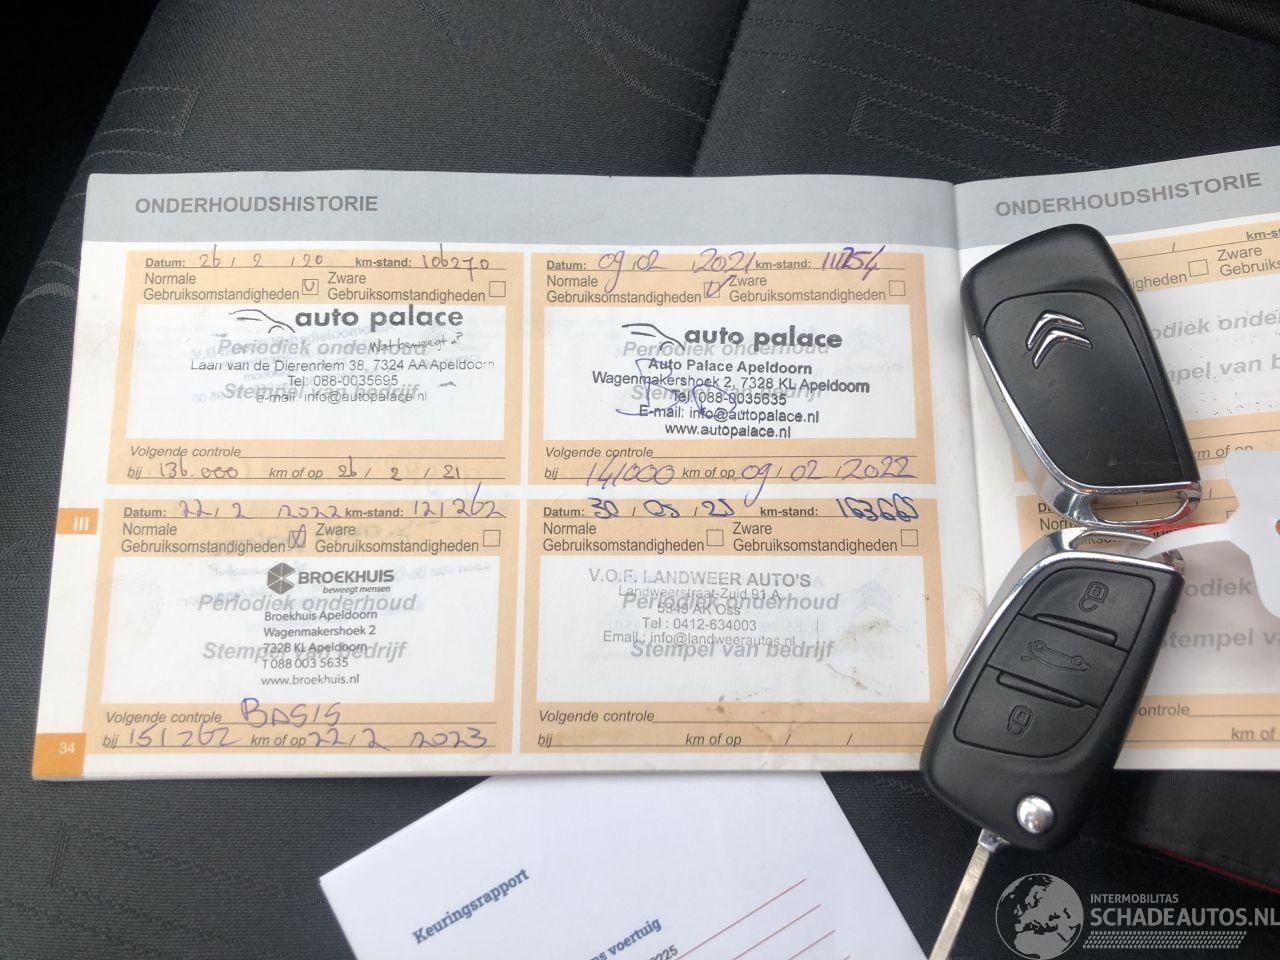 ONDERHOUDSHISTORIE
Datum: 26 / 2 / 20 km-stand: 106270
Normale Gebruiksomstandigheden
Zware Gebruiksomstandigheden
auto palace
Wat beweegt u?
Periodiek onderhoud
Laan van de Dierenriem 38, 7324 AA Apeldoorn
Tel: 088-0035695
Stempel van bedrijf
e-mail: info@autopalace.nl
Volgende controle
bij 136.000 km of op 26 / 2 / 21
Datum: 09 / 02 / 2021 km-stand: 111254
Normale Gebruiksomstandigheden
Zware Gebruiksomstandigheden
auto palace
Periodiek onderhoud
Auto Palace Apeldoorn
Wagenmakershoek 2, 7328 KL Apeldoorn
Tel: 088-0035635
Stempel van bedrijf
E-mail: info@autopalace.nl
www.autopalace.nl
Volgende controle
bij 141000 km of op 09 / 02 / 2022
III
Datum: 22 / 2 2022 km-stand: 121262
Normale Gebruiksomstandigheden
Zware Gebruiksomstandigheden
BROEKHUIS
beweegt mensen
Periodiek onderhoud
Broekhuis Apeldoorn
Wagenmakershoek 2
7328 KL Apeldoorn
Stempel van bedrijf
T 088 003 5635
www.broekhuis.nl
Volgende controle BASIS
bij 151262 km of op 22 / 2 2023
Datum: 30 / 05 / 25 km-stand: 163665
Normale Gebruiksomstandigheden
Zware Gebruiksomstandigheden
V.O.F. LANDWEER AUTO'S
Landweerstraat-Zuid 91 A
Periodiek onderhoud
5349 AK Oss
Tel : 0412-634003
Email : info@landweerautos.nl
Stempel van bedrijf
Volgende controle
bij km of op / /
34
ONDERHOUDSHISTORIE
km-st
Zware
Gebruiks
Periodiek onderh
Stempel van bed
km of
Norm
Gebruiks
Periodiek
Stempel van
controle
km of
Keuringsrapport
ns voertuig
0225
INTERMOBILITAS
SCHADEAUTOS.NL